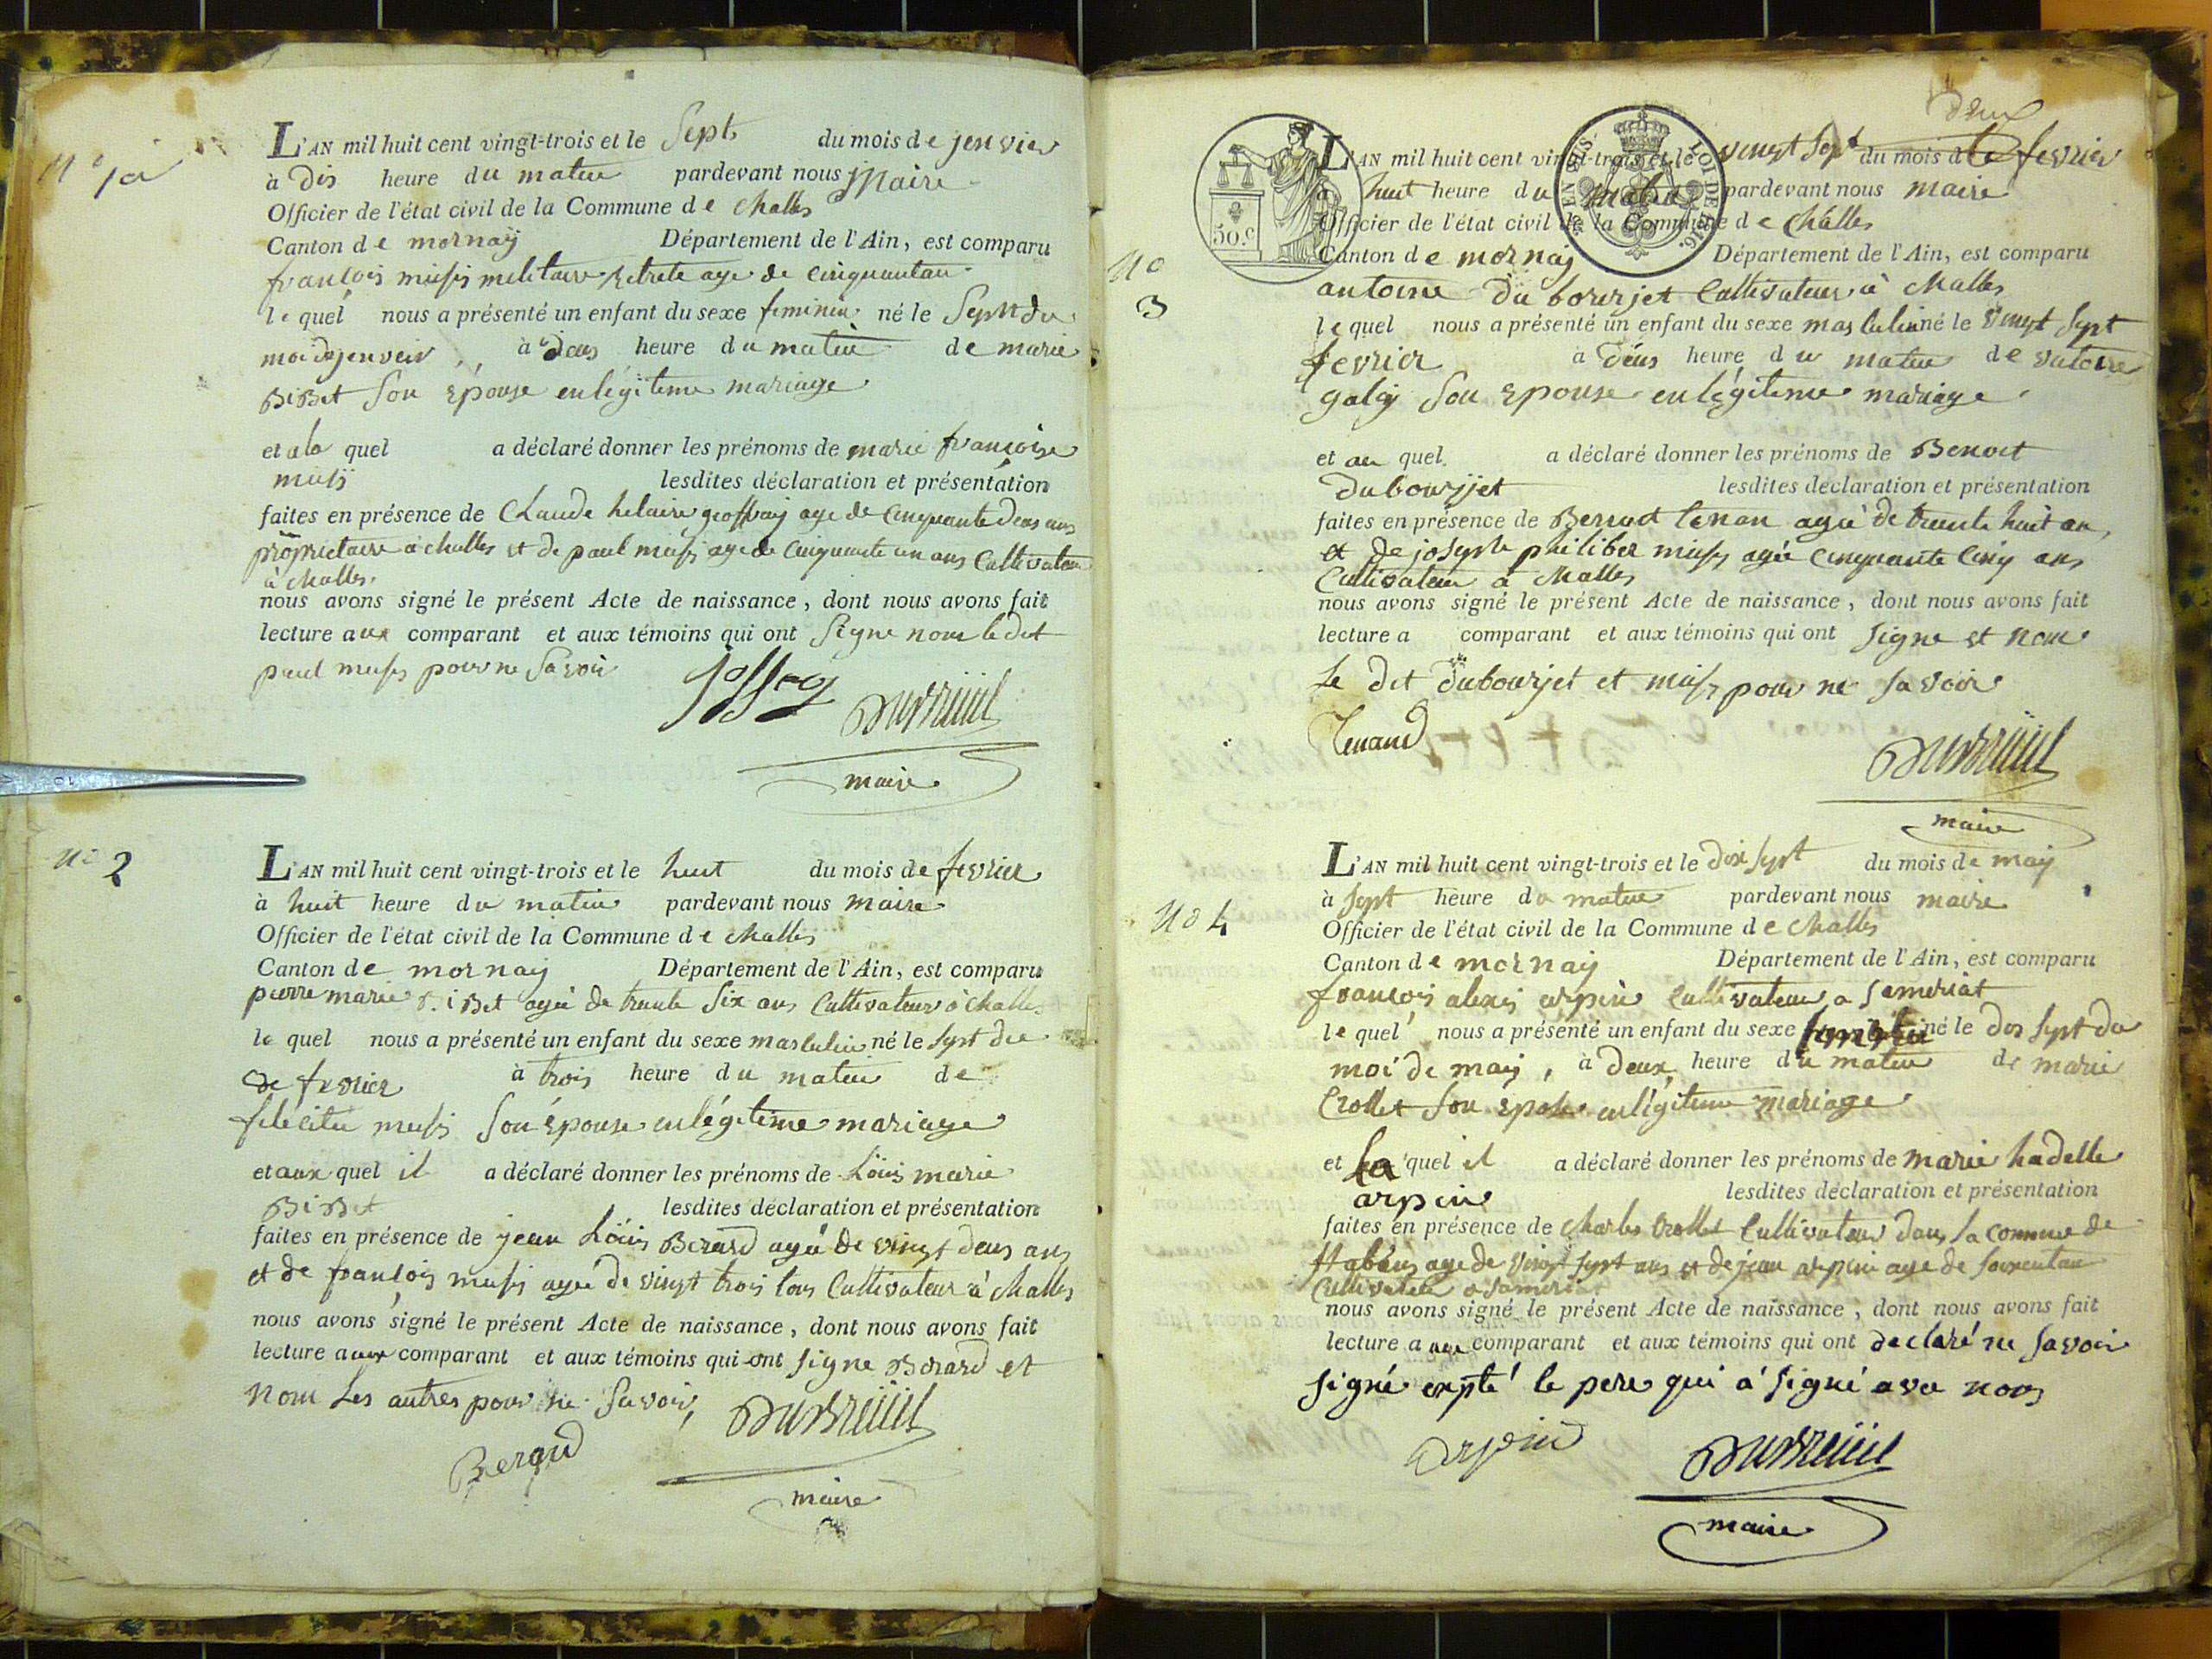 L'AN mil huit cent vingt-trois et le Sept du mois de jenvier
à dis heure du matin pardevant nous Maire
Officier de l'état civil de la Commune de challes
Canton de mornaÿ Département de l'Ain, est comparu
francois militaire retrete age de cinquantan
le quel nous a présenté un enfant du sexe feminin né le Sept du
moi de jenveir, à deus heure du matin de marie
BiBet Son épouse en légitime mariage
et a la quel a déclaré donner les prénoms de marie françoise
lesdites déclaration et présentation
faites en présence de Claude helaire geoffray age de cinquante deus ans
propriétaire a challes et de paul age de cinquante un ans Cultivateur
à challes.
nous avons signé le présent Acte de naissance, dont nous avons fait
lecture aux comparant et aux témoins qui ont signe nom le dit
paul pour ne Savoir
DuBreüil
maire
no 2
L'AN mil huit cent vingt-trois et le huit du mois de fevrier
à huit heure du matin pardevant nous maire
Officier de l'état civil de la Commune de challes
Canton de mornay Département de l'Ain, est comparu
pierre marie BiBet agé de trente Six ans Cultivateur à challes
le quel nous a présenté un enfant du sexe masculin né le sept du
de fevrier à trois heure du matin de
félicité Son épouse en légitime mariage
et aux quel il a déclaré donner les prénoms de Löuis marie
BiBet lesdites déclaration et présentation
faites en présence de jean Löüis Berard agé de vingt deus ans
et de francois agé de vingt trois tous Cultivateur à challes
nous avons signé le présent Acte de naissance, dont nous avons fait
lecture aux comparant et aux témoins qui ont signe Berard et
nom Les autres pour ne Savoir,
DuBreüil
Berard
maire
50.c
EN SUS
LOI DE 1816.
deux
no
3
L'AN mil huit cent vingt-trois et le vingt Sept du mois de fevrier
à huit heure du matin pardevant nous maire
Officier de l'état civil de la Commune de challes
Canton de mornaj Département de l'Ain, est comparu
antoine du bourjet Cultivateur à challes
le quel nous a présenté un enfant du sexe masculin né le vingt sept
fevrier à deus heure du matin de
Son epouse en légitime mariage
et au quel a déclaré donner les prénoms de Benoit
dubourjet lesdites déclaration et présentation
faites en présence de Benoit tenan agé de trente huit an,
et de joseph philiber agé cinquante cinq ans
Cultivateur a challes
nous avons signé le présent Acte de naissance, dont nous avons fait
lecture a comparant et aux témoins qui ont signe et nom
Le dit dubourjet et pour ne savoir
Tenand
DuBreüil
maire
no 4
L'AN mil huit cent vingt-trois et le dix sept du mois de may
à sept heure du matin pardevant nous maire
Officier de l'état civil de la Commune de challes
Canton de mornay Département de l'Ain, est comparu
francois alexis arpin Cultivateur a Sameriat
le quel nous a présenté un enfant du sexe né le dis sept du
moi de may, à deux heure du matin de marie
Crollet son epose en légitime mariage
et La quel il a déclaré donner les prénoms de marie
arpin lesdites déclaration et présentation
faites en présence de Charles Crollet Cultivateur dans la commue de
age de vingt sept ans et de jean arpin age de soixentan
Cultivateur a Sameriat
nous avons signé le présent Acte de naissance, dont nous avons fait
lecture a aux comparant et aux témoins qui ont déclaré ne savoir
signé expté le pere qui à signé avec nous
arpin
DuBreüil
maire